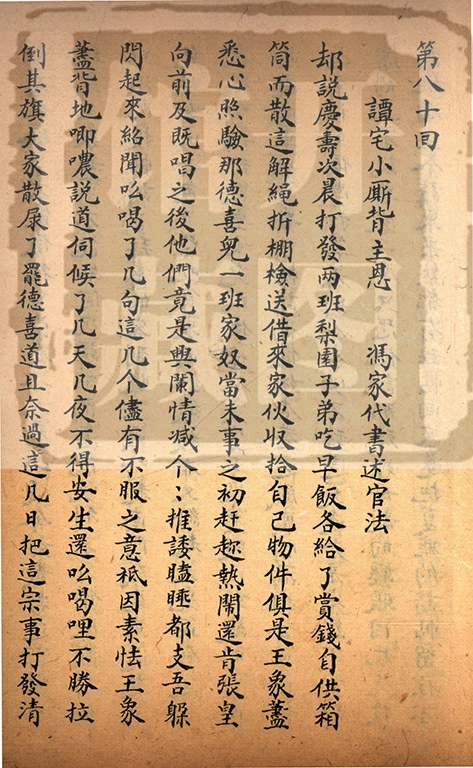 第八十回
譚宅小廝背主恩 馮家代書述官法
却說慶壽次晨打發两班梨園子弟吃早飯各給了賞錢自供箱
筒而散這解繩折棚檢送借來家伙収拾自己物件俱是王象藎
悉心照驗那德喜兒一班家奴當未事之初赶趁熱鬧還肯張皇
向前及既唱之後他們竟是興闌情减个〻推諉瞌睡都支吾躱
閃起來紹聞吆喝了几句這几个儘有不服之意祗因素怯王象
藎背地唧噥説道伺候了几天几夜不得安生還吆喝哩不勝拉
倒其旗大家散屎了罷德喜道且奈過這几日把這宗事打發清